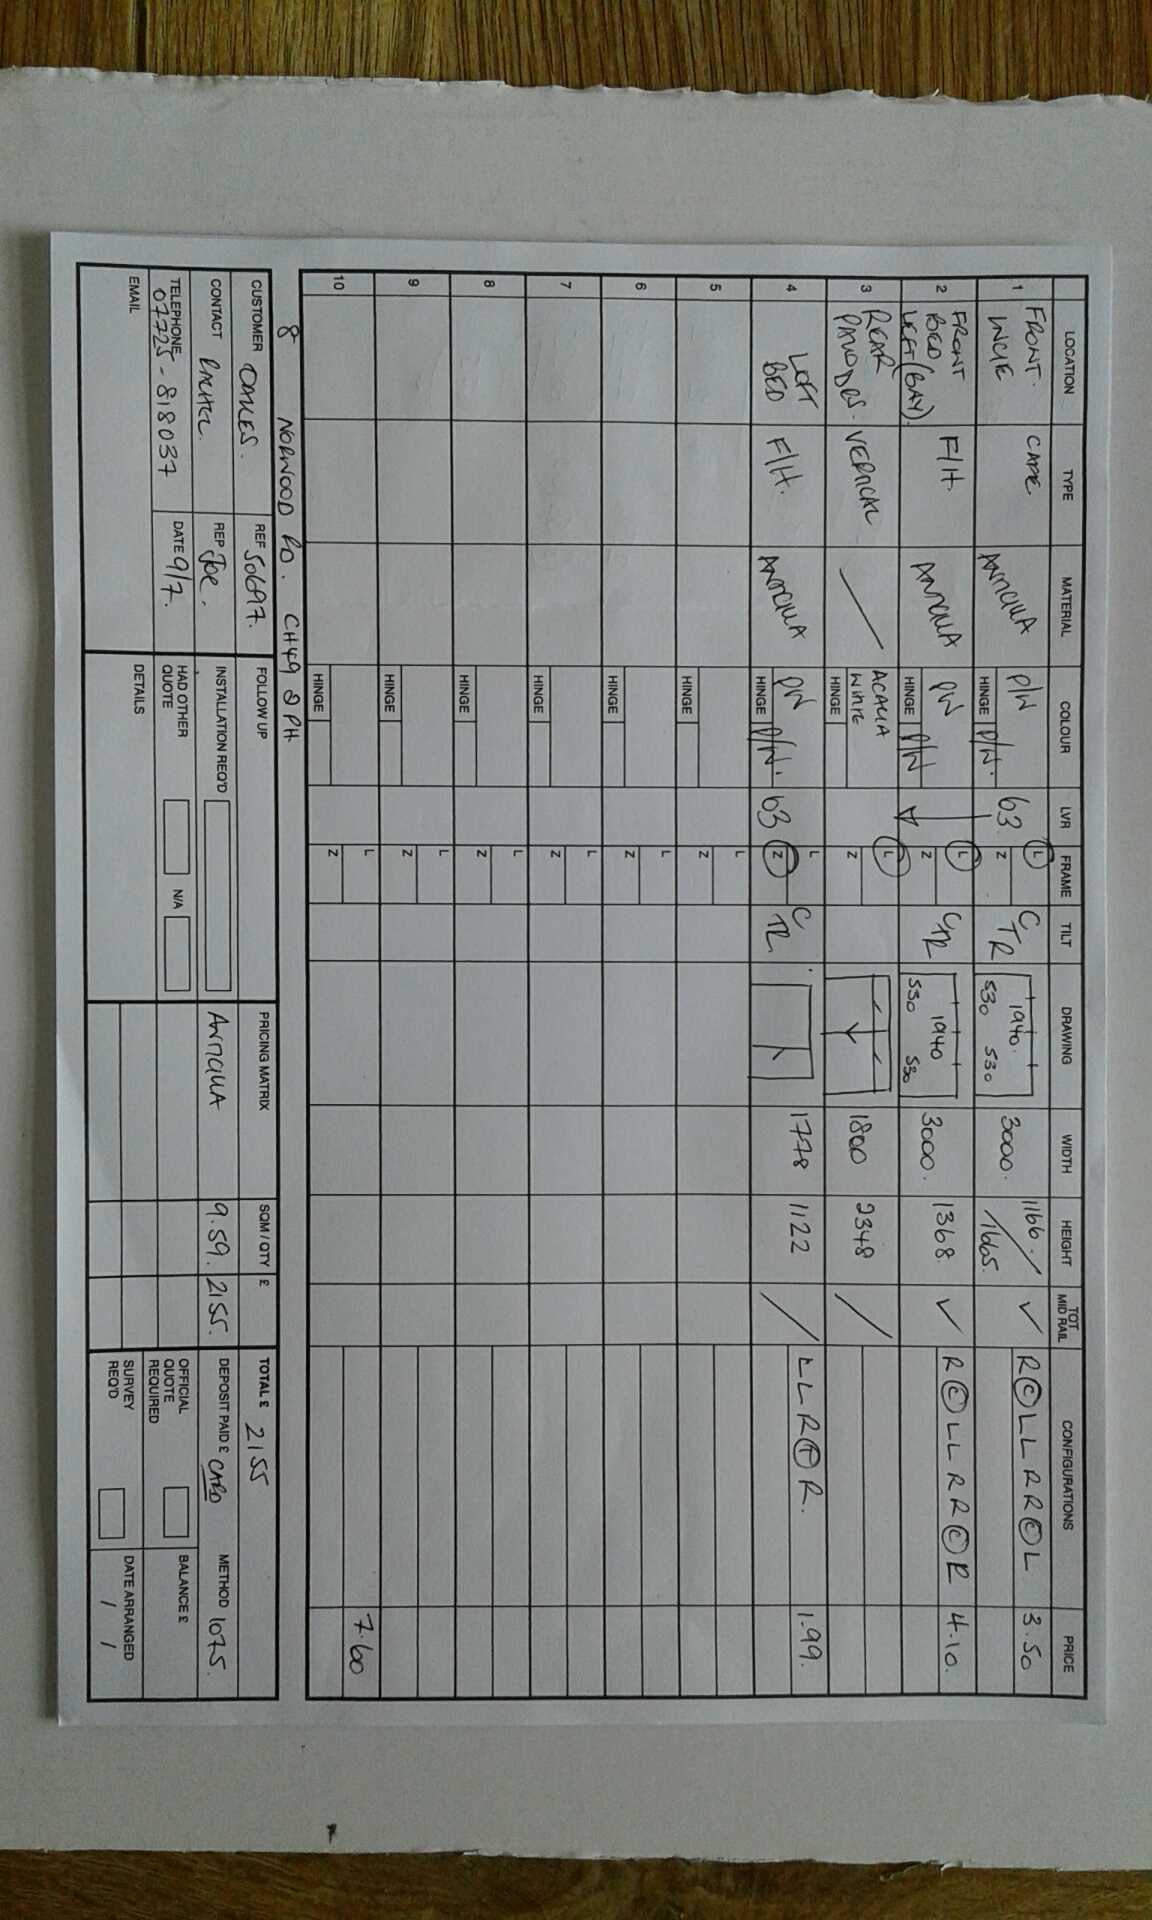 LOCATION TYPE MATERIAL COLOUR LVR FRAME TILT DRAWING WIDTH HEIGHT TOT MID RAIL CONFIGURATIONS PRICE
1 FRONT. CAFE P/W 63 L C 1940. 3000. 1166 / ✓ R C L L R R C L 3.50
HINGE P/W. Z TR 530 530 1665.
2 FRONT F/H. P/W L CTR 1940 3000. 1368. ✓ R C L L R R C R 4.10.
BED HINGE P/W Z 530 530
LEFT (BAY).
3 REAR VERTICAL / ACACIA L 1800 2348 /
WHITE
HINGE Z
4 LOFT F/H. PW 63 L C 1778 1122 / L L R T R. 1.99.
BED HINGE P/W. Z TR.
5 L
HINGE Z
6 L
HINGE Z
7 L
HINGE Z
8 L
HINGE Z
9 L
HINGE Z
10 L 7.60
HINGE Z
8 NORWOOD RD. CH49
CUSTOMER OAKES. REF 50697. FOLLOW UP PRICING MATRIX SQM / QTY £ TOTAL £ 2155
CONTACT REP Joe. INSTALLATION REQ'D 9.59. 2155. DEPOSIT PAID £ CARD METHOD 1075.
TELEPHONE 07725-818037 DATE 9/7. HAD OTHER QUOTE N/A OFFICIAL QUOTE REQUIRED BALANCE £
EMAIL DETAILS SURVEY REQ'D DATE ARRANGED / /